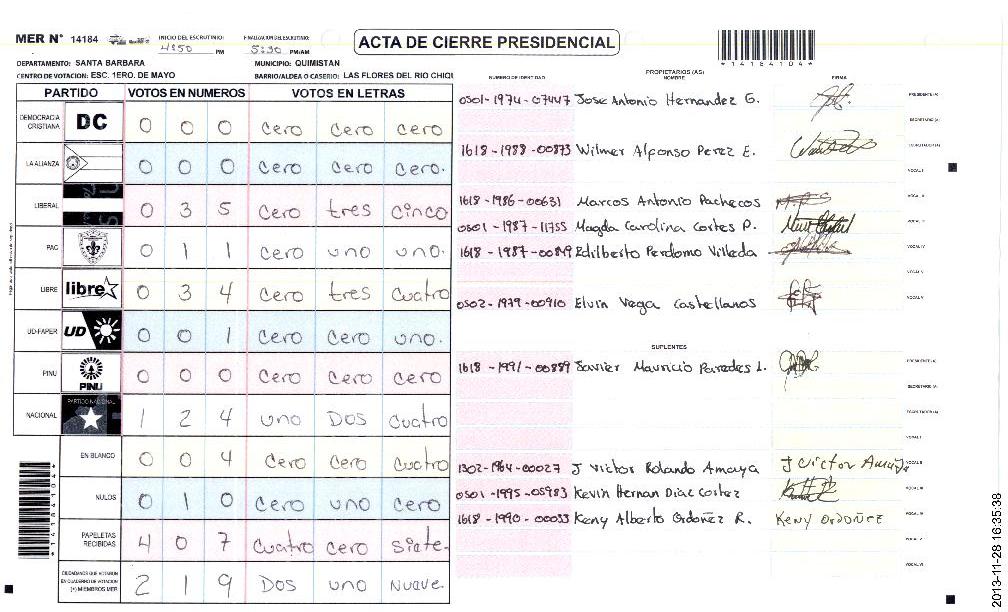 MER N° 14184 INICIO DEL ESCRUTINIO: 4:50 PM FINALIZACION DEL ESCRUTINIO: 5:30 PM/AM
ACTA DE CIERRE PRESIDENCIAL
*14184104*
DEPARTAMENTO: SANTA BARBARA MUNICIPIO: QUIMISTAN
CENTRO DE VOTACION: ESC. 1ERO. DE MAYO BARRIO/ALDEA O CASERIO: LAS FLORES DEL RIO CHIQU
PARTIDO VOTOS EN NUMEROS VOTOS EN LETRAS
DEMOCRACIA CRISTIANA DC 0 0 0 Cero Cero Cero
LA ALIANZA 0 0 0 Cero Cero Cero.
LIBERAL 0 3 5 Cero tres Cinco
PAC 0 1 1 Cero uno uno.
LIBRE libre 0 3 4 Cero tres Cuatro
UD-FAPER UD 0 0 1 Cero Cero uno.
PINU PINU 0 0 0 Cero Cero Cero
NACIONAL PARTIDO NACIONAL 1 2 4 uno DOS Cuatro
EN BLANCO 0 0 4 Cero Cero Cuatro
NULOS 0 1 0 Cero uno Cero
PAPELETAS RECIBIDAS 4 0 7 Cuatro Cero Siete.
CIUDADANOS QUE VOTARON EN CUADERNO DE VOTACION (+) MIEMBROS MER 2 1 9 DOS uno Nuave.
*14184104*
PROPIETARIOS (AS)
NUMERO DE IDENTIDAD NOMBRE FIRMA
0501-1974-07447 Jose Antonio Hernandez G. PRESIDENTE (A)
SECRETARIO (A)
1618-1988-00873 Wilmer Alfonso Perez E. ESCRUTADOR (A)
VOCAL I
1618-1986-00631 Marcos Antonio Pachecos VOCAL II
0501-1987-11755 Magda Carolina Cortes P. VOCAL III
1618-1987-00849 Edilberto Perdomo Villeda VOCAL IV
VOCAL V
0502-1979-00910 Elvin Vega Castellanos VOCAL VI
SUPLENTES
1618-1991-00889 Javier Mauricio Paredes L. PRESIDENTE (A)
SECRETARIO (A)
ESCRUTADOR (A)
VOCAL I
1302-1964-00027 J Victor Rolando Amaya J Victor Amaya VOCAL II
0501-1995-05983 Kevin Hernan Diaz Cortez VOCAL III
1618-1990-00033 Keny Alberto Ordoñez R. KENY ORDOÑEZ VOCAL IV
VOCAL V
VOCAL VI
2013-11-28 16:35:38